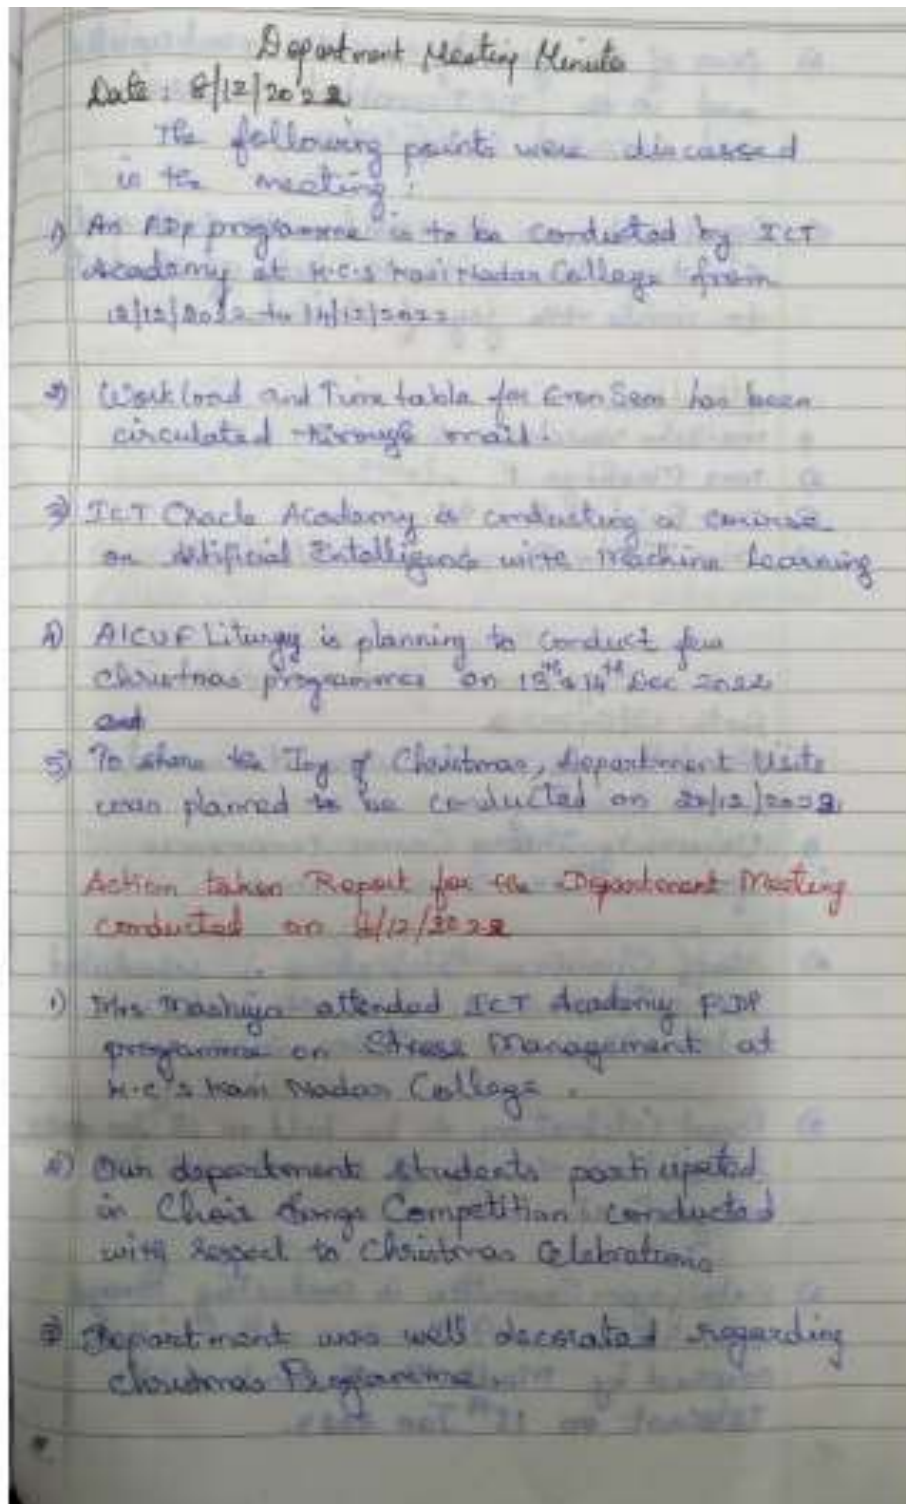 Department Meeting Minutes
Date : 8/12/2022
The following points were discussed
in the meeting :
1) An FDP programme is to be conducted by ICT
Academy at K.C.S Kasi Nadar College from
12/12/2022 to 14/12/2022
2) Work load and Time table for Even Sem has been
circulated through mail.
3) ICT Oracle Academy is conducting a course
on Artificial Intelligence with Machine Learning
4) AICUF Liturgy is planning to conduct few
Christmas programmes on 13th & 14th Dec 2022
5) To share the Joy of Christmas, department Visits
was planned to be conducted on 20/12/2022.
Action taken Report for the Department Meeting
conducted on 8/12/2022
1) Mrs attended ICT Academy FDP
programme on Stress Management at
K.C.S Kasi Nadar College.
2) Our department students participated
in Choir Songs Competition conducted
with respect to Christmas Celebrations
3) Department was well decorated regarding
Christmas Programme.